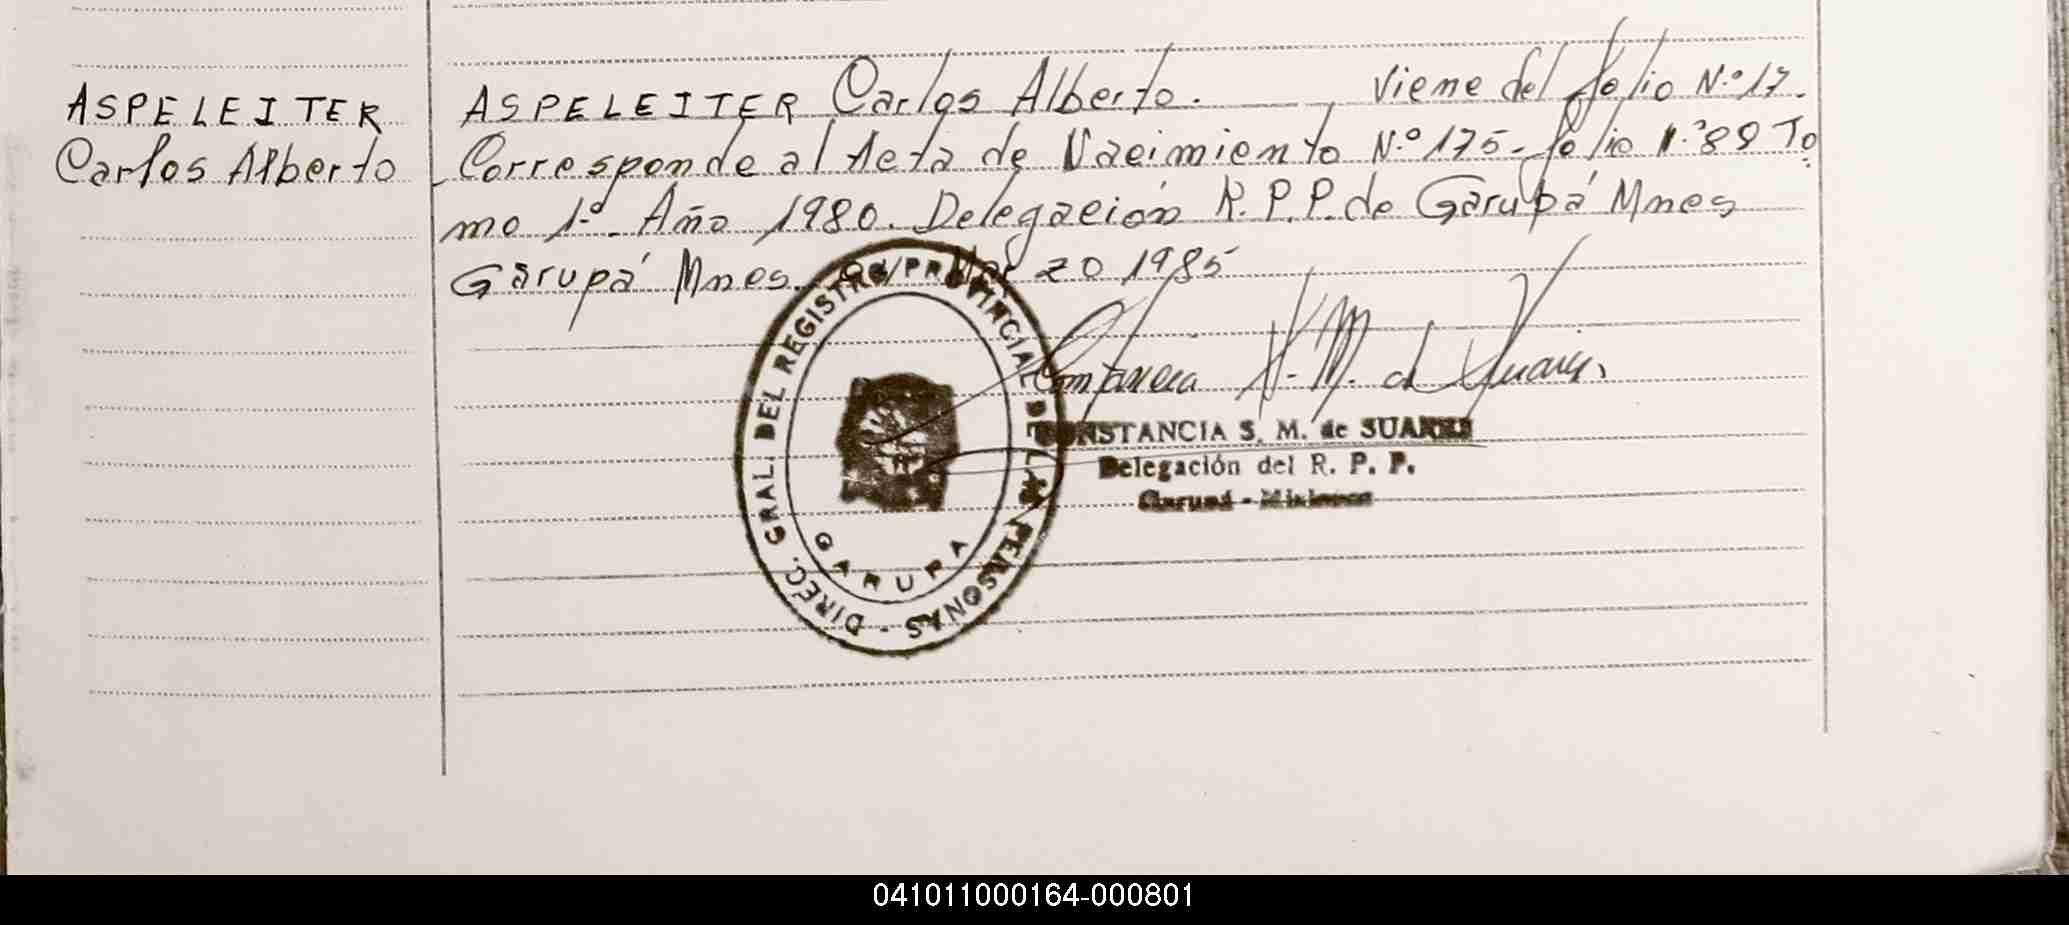 ASPELEITER
Carlos Alberto
ASPELEITER Carlos Alberto. Viene del folio N.º 17.
Corresponde al Acta de Nacimiento N.º 175- folio N.º 89 To
mo 1º- Año 1980. Delegación R.P.P. de Garupá Mnes
Garupá Mnes. Marzo 1985
DIREC. GRAL. DEL REGISTRO PROVINCIAL DE LAS PERSONAS -
GARUPA
Constancia S. M. d Suarez.
CONSTANCIA S. M. de SUAREZ
Delegación del R. P. P.
Garupá - Misiones
041011000164-000801